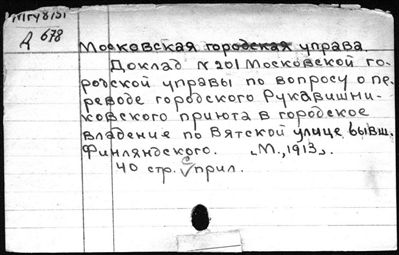 Д 678
Московская городская управа.
Доклад № 201 Московской го-
родской управы по вопросу о пе-
реводе городского Рукавишни-
ковского приюта в городское
владение по Вятской улице бывш.
Финляндского. „М., 1913".
40 стр. с прил.